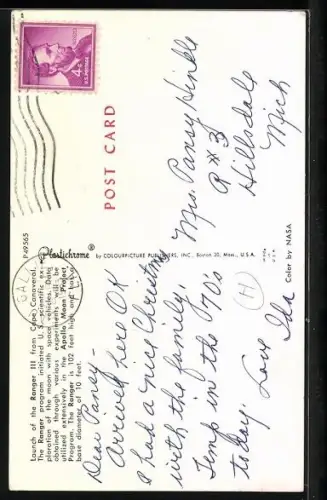 Launch of the Ranger III from Cape Canaveral.
The Ranger program initiated U.S. scientific ex-
ploration of the moon with space vehicles. Data
obtained through various experiments will be
utilized extensively in the Apollo "Moon Project"
Program. The Ranger is 102 feet high and has a
base diameter of 10 feet.
Dear Pansy-
Arrived here OK
& had a nice Christmas
with the family
Temp in the 70s
today Love Ida
P49565
Plastichrome ®
by COLOURPICTURE PUBLISHERS, INC., Boston 30, Mass., U.S.A.
Color by NASA
H
POST CARD
4¢
U.S. POSTAGE
Mrs. Pansy Hinkle
R #3
Hillsdale
Mich